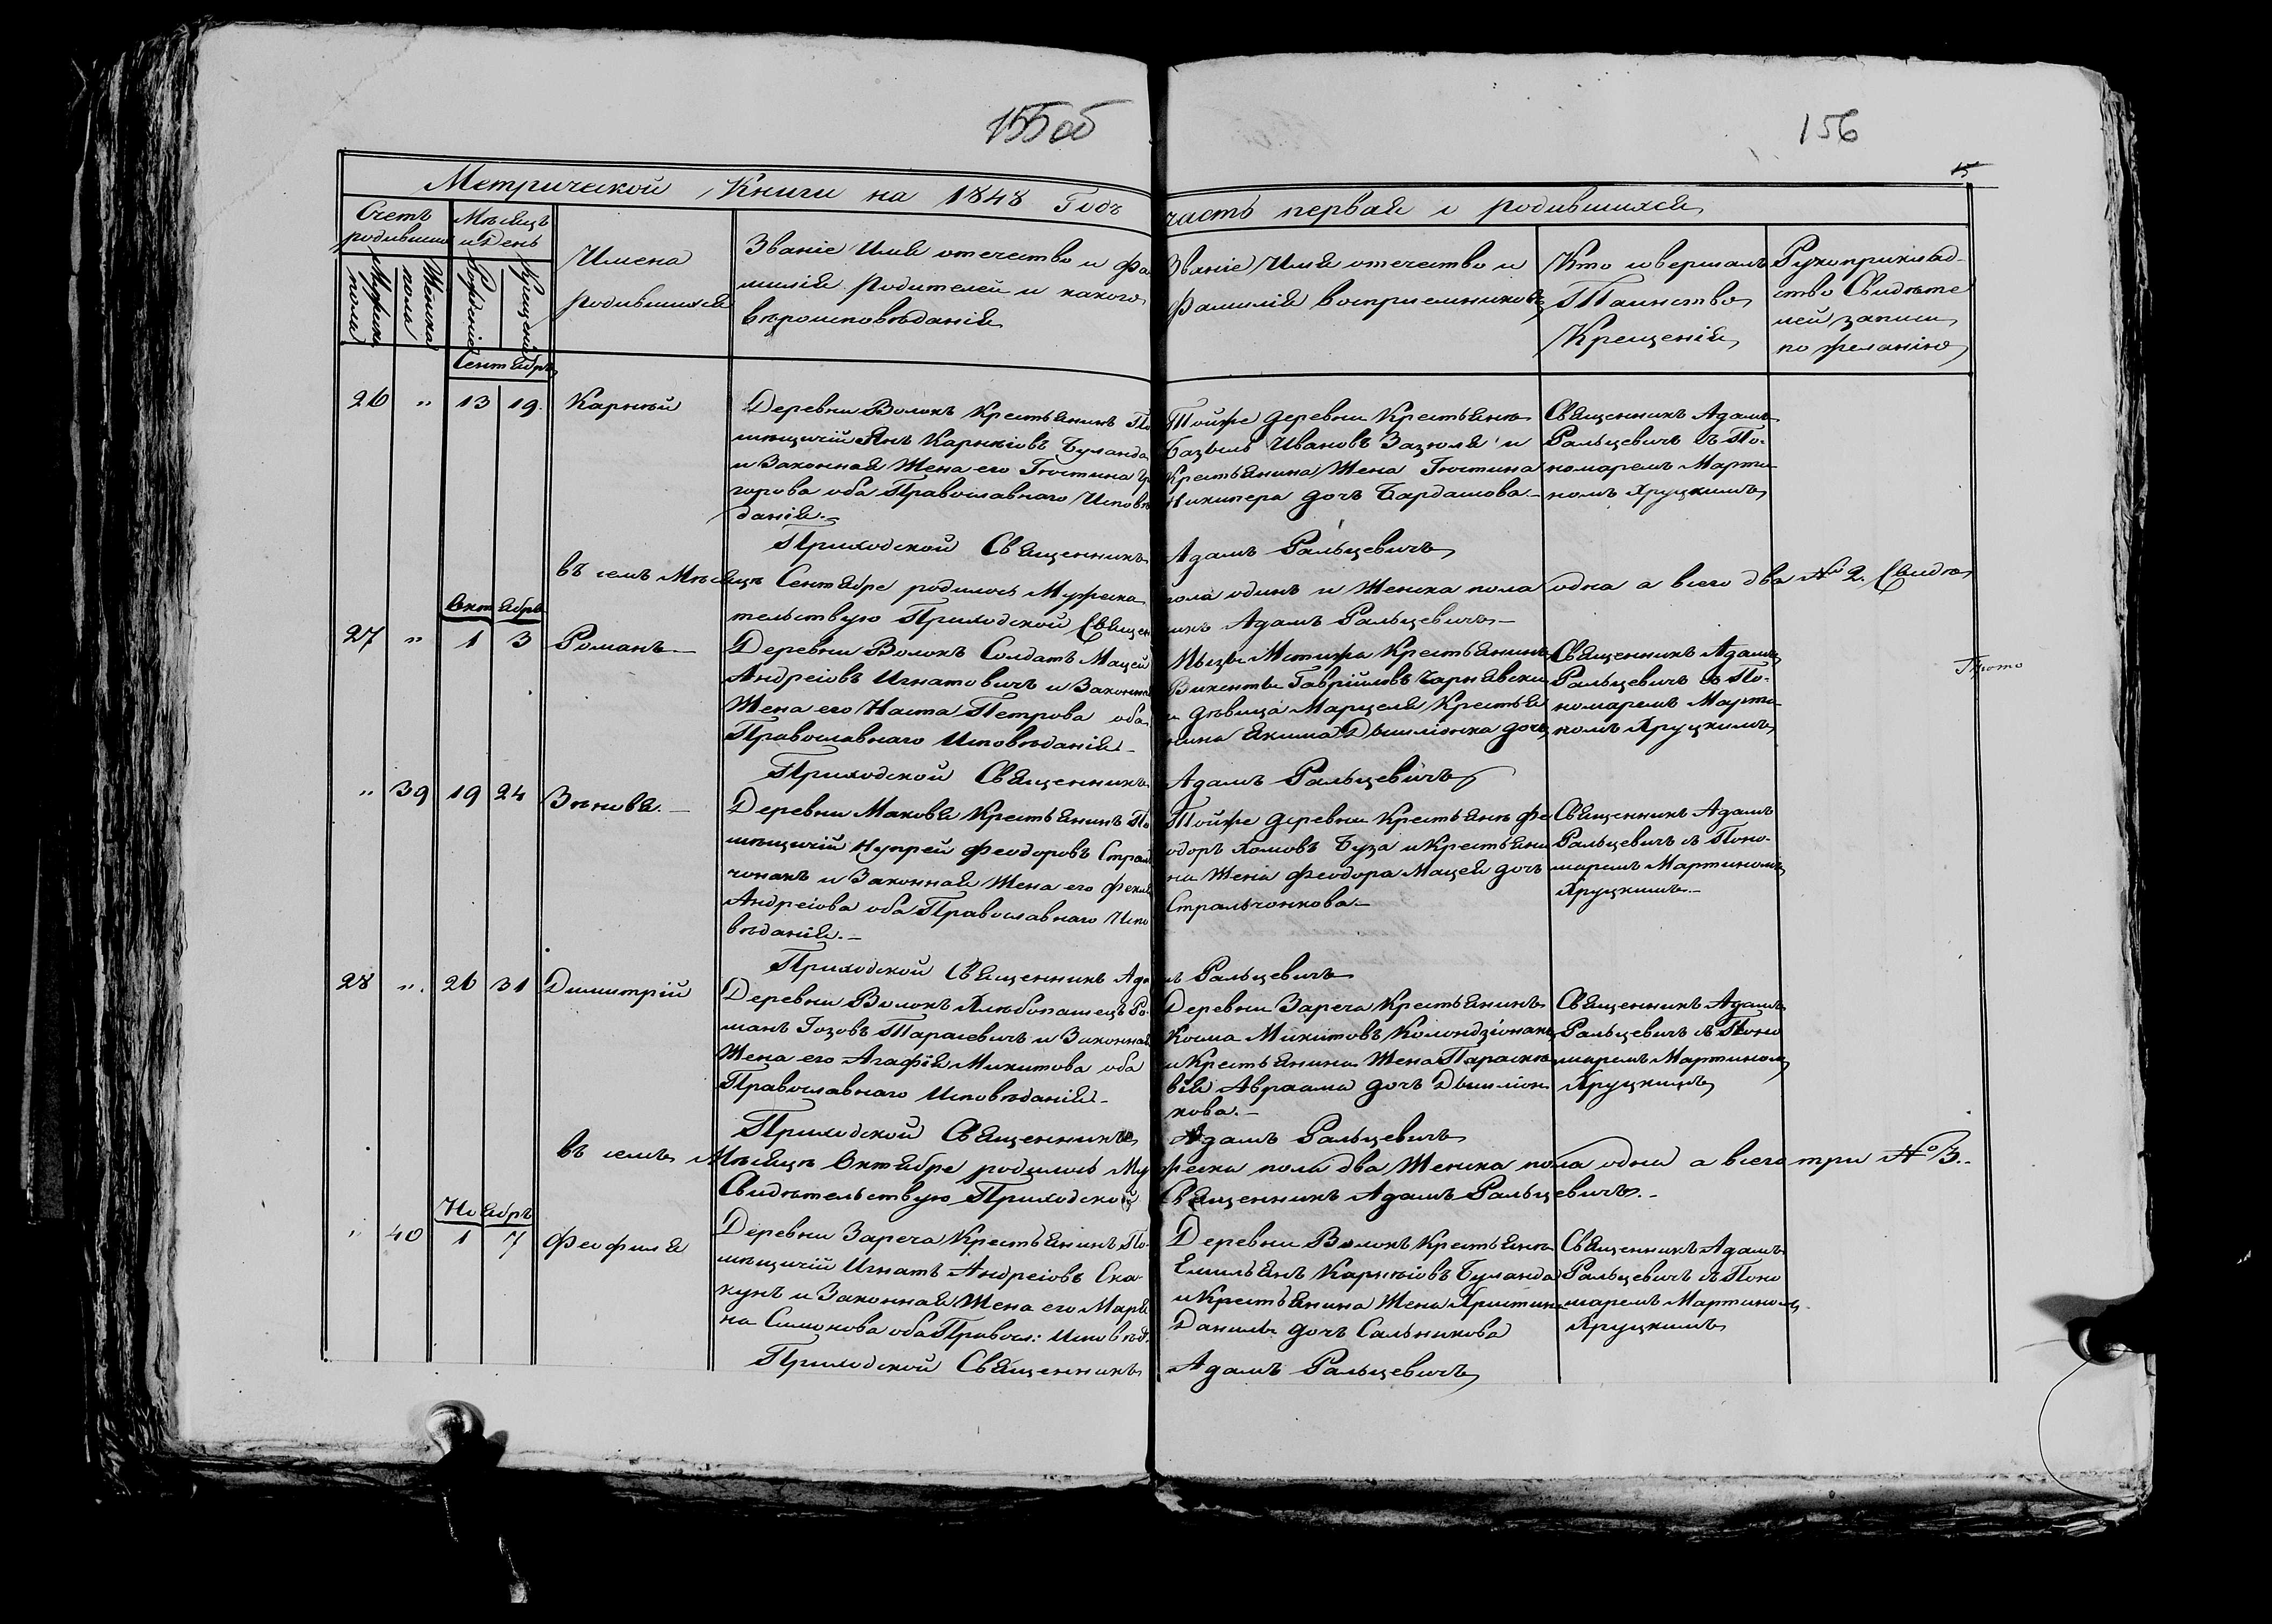 155об
156
Метрической Книги на 1848 Годъ
часть первая о родившихся
Счетъ родившихся
Мѣсяцъ и День
Имена родившихся
Званіе Имя отечество и фа
милія родителей и какого
вѣроисповѣданія
Званіе Имя отечество и
фамилія воспріемниковъ
Кто совершалъ
Таинство
Крещенія
Рукоприклад-
ство Свидѣте
лей записи
по желанію
Мужеска пола
Женска пола
Рожденія
Крещенія
Сентябрь
26 " 13 19. Карнѣй
Деревни Волокъ Крестьянинъ По
мѣщичій Янъ Карнѣіовъ Буланда
и Законная Жена его Іюстина Гр
горова оба Православнаго Исповѣ
данія.
Тойже деревни Крестьянъ
Базыль Ивановъ Зазюля и
Крестьянина Жена Іюстина
Никипера дочъ Бардашова
Священникъ Адамъ
Ральцевичъ съ По-
номаремъ Марти-
номъ Хруцкимъ
Приходской Священникъ Адамъ Ральцевичъ
въ семъ Мѣсяцѣ Сентябре родилось Мужеска пола одинъ и Женска пола одна а всего два № 2. Свидѣ
тельствую Приходской Священникъ Адамъ Ральцевичъ
Октябрь
27 " 1 3 Романъ
Деревни Волокъ Солдатъ Мацей
Андреіовъ Игнатовичъ и Законна
Жена его Наста Петрова оба
Православнаго Исповѣданія
Мызы Крестьянинъ
Викенты Гавріиловъ Чарнявски
и дѣвица Марцеля Крестья
нина Якима дочъ
Священникъ Адамъ
Ральцевичъ съ По-
номаремъ Марти-
номъ Хруцкимъ
Приходской Священникъ Адамъ Ральцевичъ
" 39 19 24 Зѣновя.
Деревни Маковя Крестьянинъ По
мѣщичій Купрей Феодоровъ Страль
чонакъ и Законная Жена его Фекла
Андреіова оба Православнаго Испо
вѣданія.
Тойже деревни Крестьянъ Фе
одоръ Хомовъ Буза и Крестьяни
на Жена Феодора Мацея дочъ
Стральчонкова
Священникъ Адамъ
Ральцевичъ съ Поно-
маремъ Мартиномъ
Хруцкимъ
Приходской Священникъ Адамъ Ральцевичъ
28 ". 26 31 Димитрій
Деревни Волокъ Хлѣбопашецъ Ро-
манъ Іозовъ Тарасевичъ и Законная
Жена его Агафія Микитова оба
Православнаго Исповѣданія
Деревни Зареча Крестьянинъ
Косма Микитовъ
и Крестьянина Жена Параске
вія Авраама дочъ
кова.
Священникъ Адамъ
Ральцевичъ съ Поно
маремъ Мартиномъ
Хруцкимъ
Приходской Священникъ Адамъ Ральцевичъ
въ семъ Мѣсяцѣ Октябре родилось Мужеска пола два Женска пола одна а всего три № 3.
Свидѣтельствую Приходской Священникъ Адамъ Ральцевичъ.
Ноябрь
" 40 1 7 Феофиля
Деревни Зареча Крестьянинъ По-
мѣщичій Игнатъ Андреіовъ Ска-
кунъ и Законная Жена его Мары
на Симонова оба Правосл: Исповѣд:
Деревни Волокъ Крестьянъ
Емильянъ Карнѣіовъ Буланда
и Крестьянина Жена Христина
Данилы дочъ Сальникова
Священникъ Адамъ
Ральцевичъ съ Поно
маремъ Мартиномъ
Хруцкимъ
Приходской Священникъ Адамъ Ральцевичъ